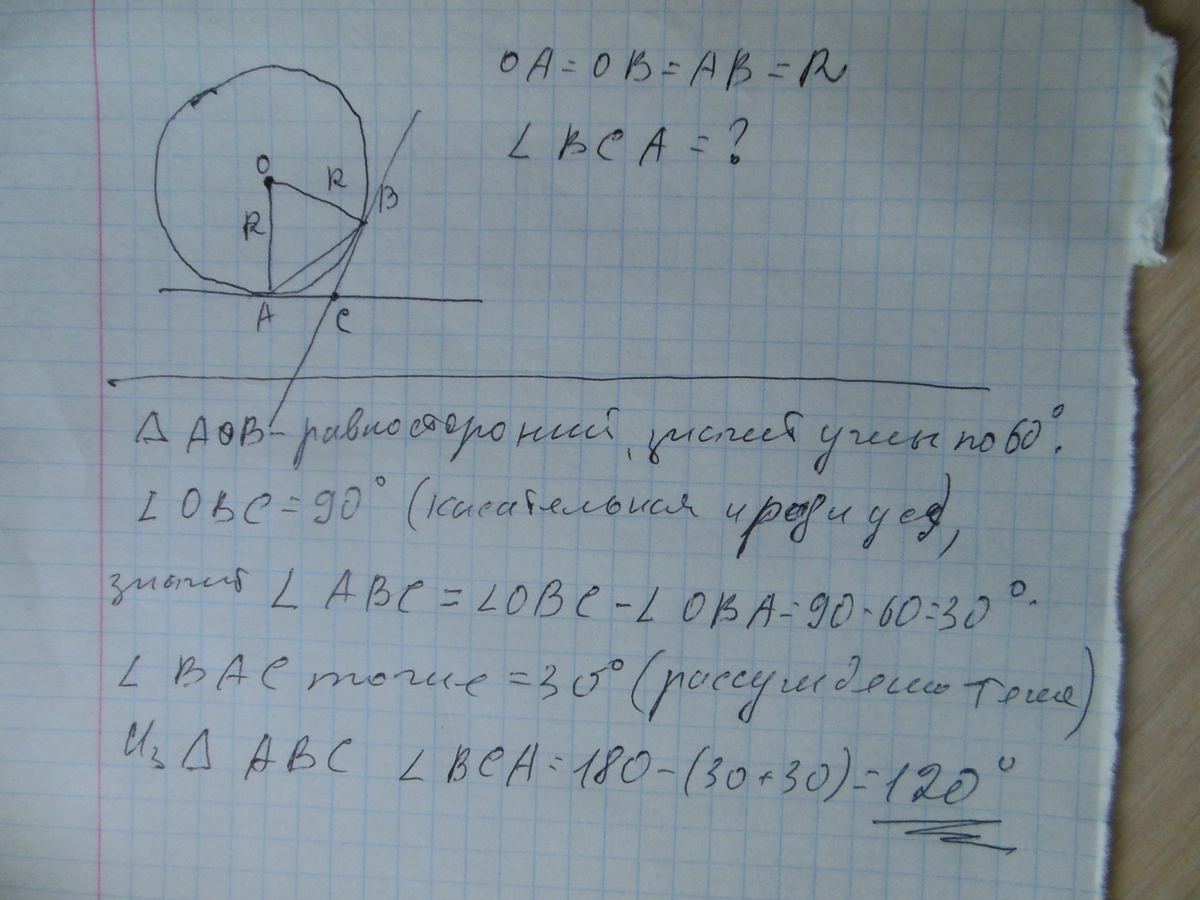 OA = OB = AB = R
∠ BCA = ?
O
R
B
R
A
C
Δ AOB - равносторонний, значит углы по 60°.
∠ OBC = 90° (касательная и радиус),
значит ∠ ABC = ∠OBC - ∠ OBA = 90-60=30°.
∠ BAC тоже = 30° (рассуждения те же)
Из Δ ABC ∠ BCA = 180-(30+30) = 120°